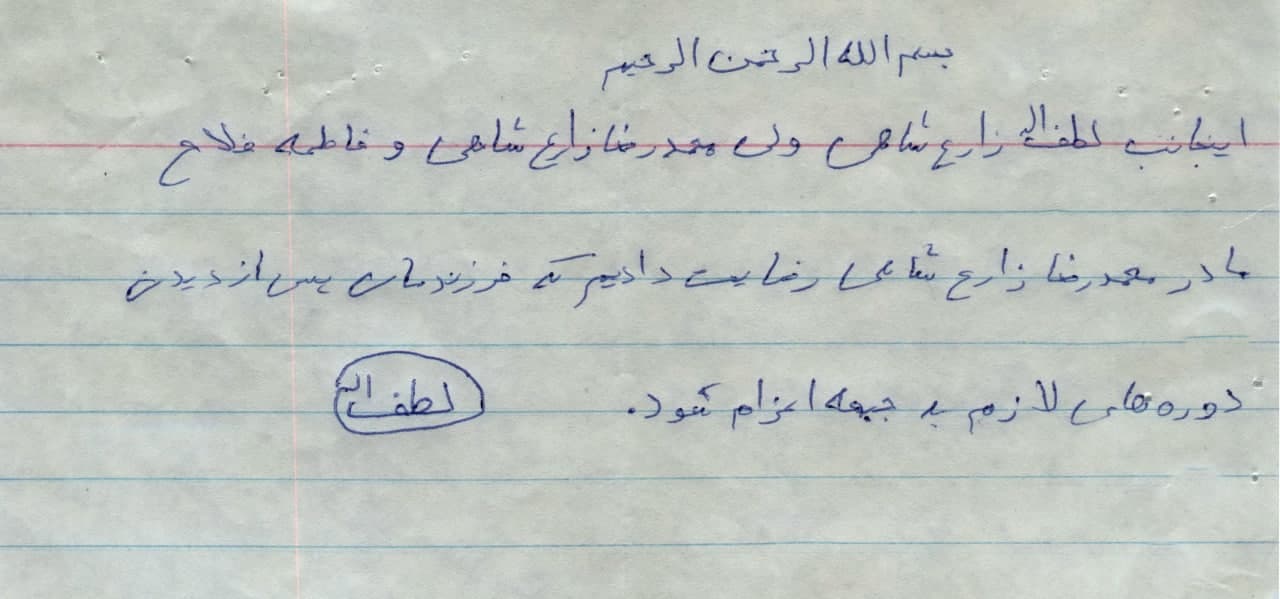 بسم الله الرحمن الرحیم
اینجانب لطف اله زارع شاهی ولی محمدرضا زارع شاهی و فاطمه فلاح
مادر محمدرضا زارع شاهی رضایت دادیم که فرزندمان پس از دیدن
دوره‌های لازم به جبهه اعزام شود.
لطف اله